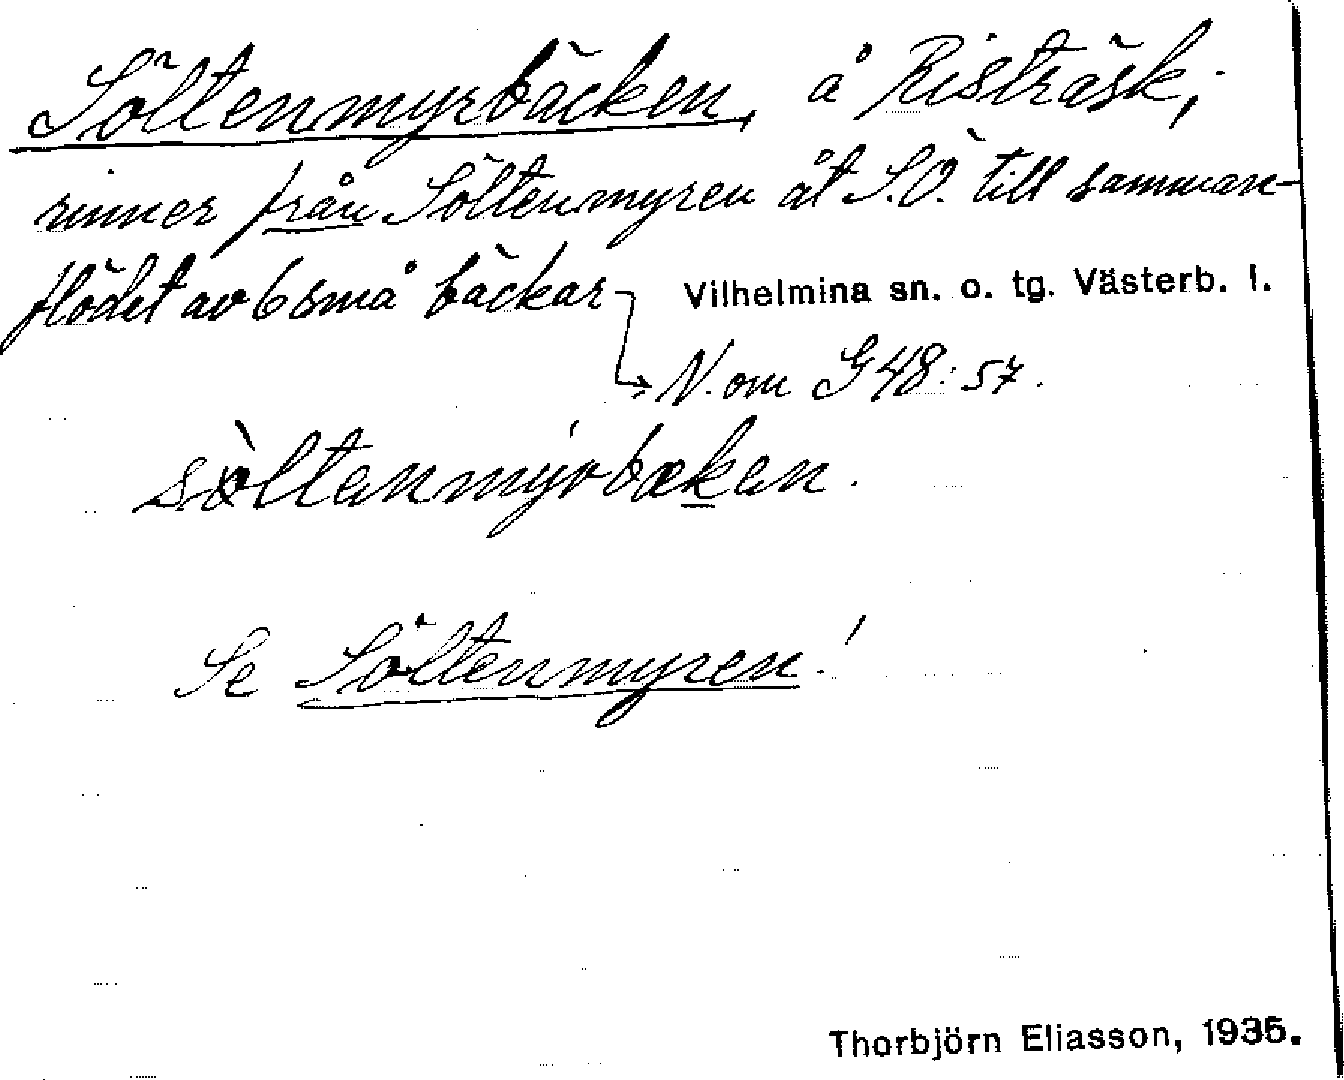 Söltenmyrbäcken, å Risträsk;
rinner från Söltenmyren åt S.Ö. till samman-
flödet av 6 små bäckar
Vilhelmina sn. o. tg. Västerb. l.
N. om G 48:57.
sòltenmýrbæken.
Se Söltenmyren!
Thorbjörn Eliasson, 1935.